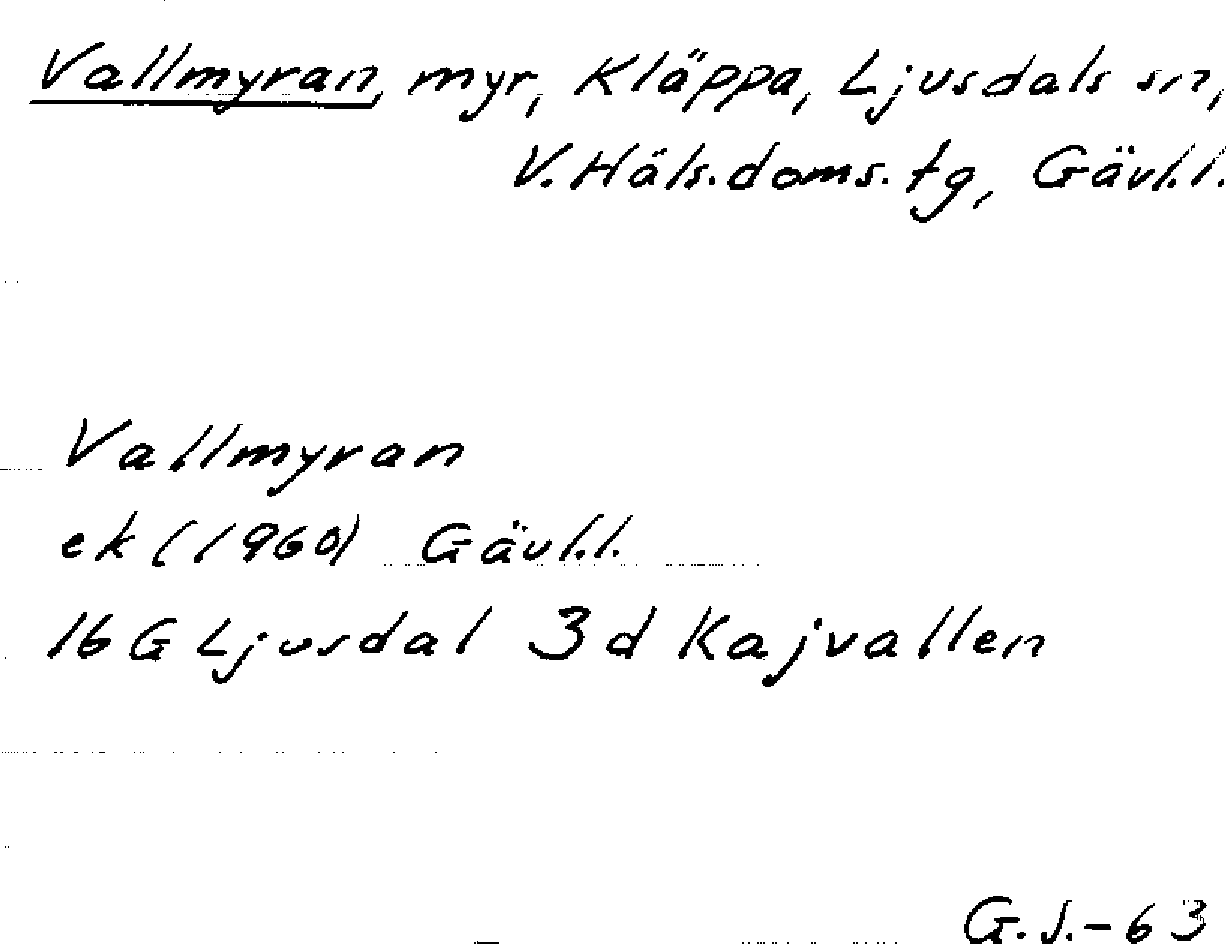 Vallmyran, myr, Kläppa, Ljusdals sn,
V. Häls. doms. tg, Gävl. l.
Vallmyran
ek (1960) Gävl. l.
16 G Ljusdal 3d Kajvallen
G. J. - 63